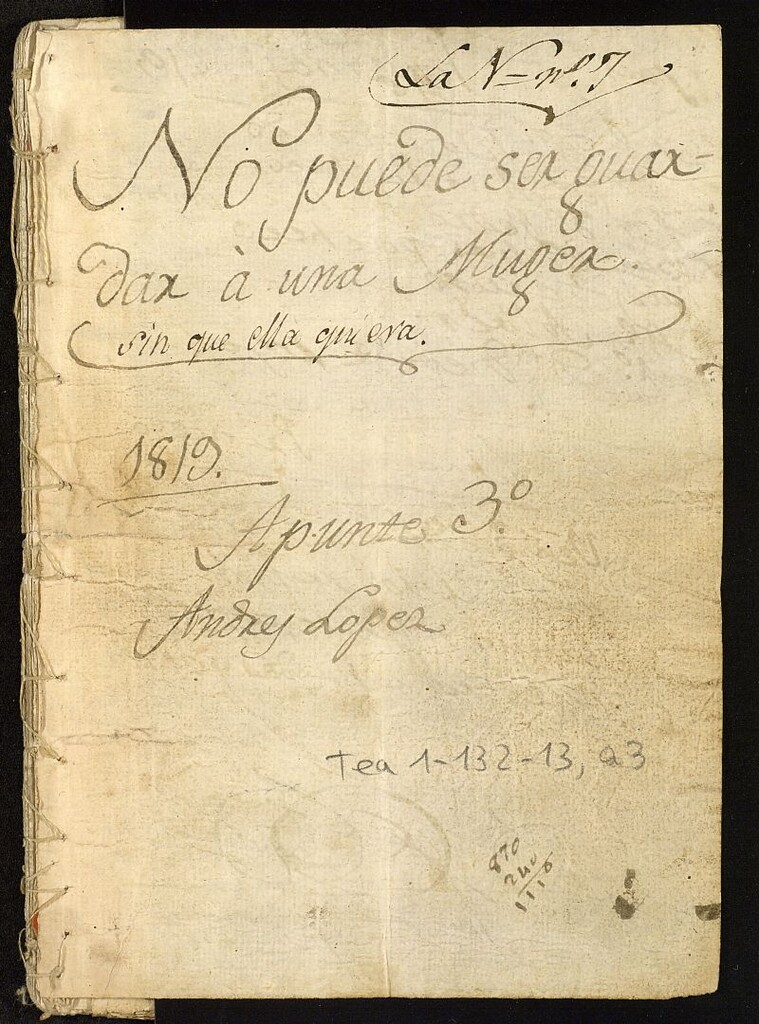 La N= nº. 7
No puede ser guar=
dar à una Muger.
sin que ella quiera.
1819.
Apunte 3.º
Andres Lopez
Tea 1-132-13, a3
870
240
1110